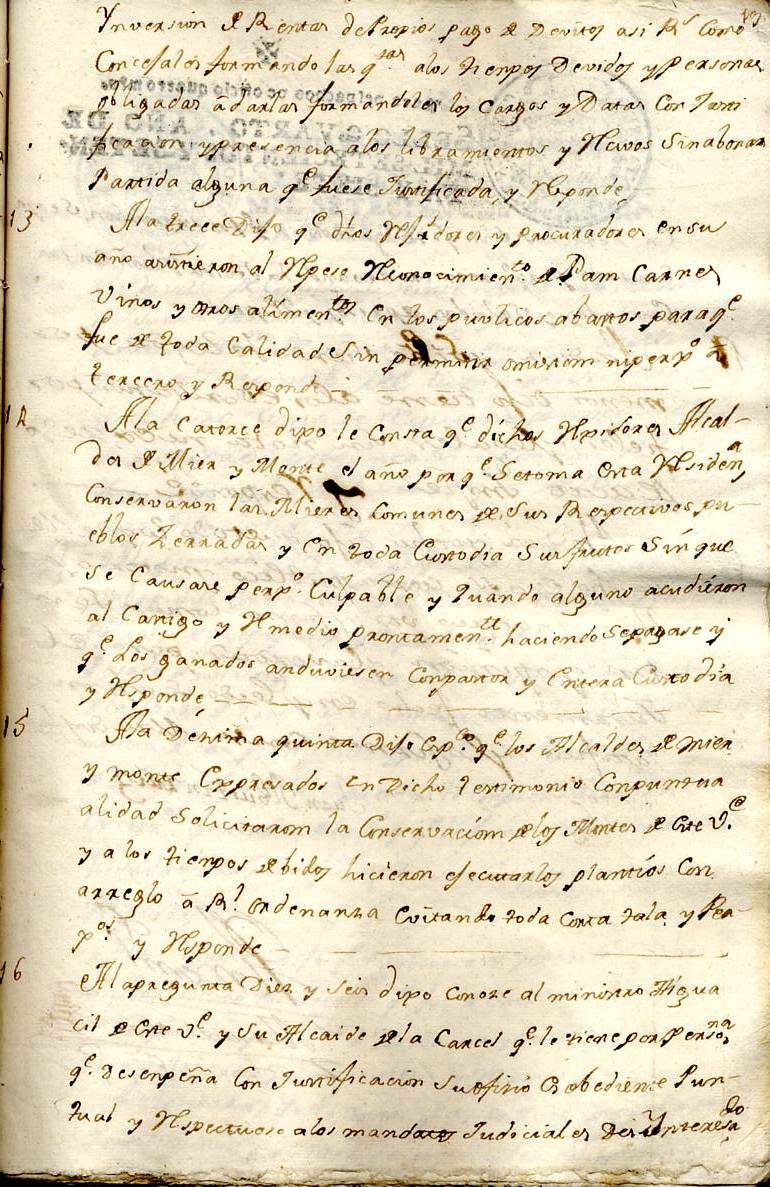 13
Ynversion de Rentas de Propios pago de Devitos asi Rs como
Concejales formando las qtas a los tienpos Devidos y personas
obligadas a darlas formandoles los Cargos y Datas Con Justi
ficacion y presencia a los libramientos y Recivos Sin abonar
Partida alguna qe fuese Justificada, y Rponde,
13 A la trece Dijo qe dhos Rejidores y procuradores en su
año asistieron al Rpeso Reconocimiento de Pam Carnes
Vinos y otros alimentos En los puvlicos abastos para qe
fue de toda Calidad Sin permitir omision ni perxo de
tercero y Responde
14 A la Catorce dijo le Consta qe dichos Rejidores Alcal-
des de Mier y Monte el año por qe Se toma Esta Rsidena
Conservaron las Mieses Comunes de Sus Respectivos pu-
eblos Zerradas y En toda Custodia Sus frutos Sin que
Se Causase perxo Culpable y quando alguno acudieron
al Castigo y Rmedio prontamente haciendo Se pagase y
qe Los ganados anduviesen Con pastor y Entera Custodia
y Rsponde
15 A la Dézima quinta Dijo qe los Alcaldes de Mier
y monte Expresados En Dicho testimonio Con puntua
alidad Solicitarom la Conservaciom de los Montes de Este Ve
y a los tienpos debidos hicieron ejecutar los plantíos Con
arreglo a Rl ordenanza Evitando toda Corta tala y
y Rsponde
16 A la pregunta Diez y Seis dijo Conoze al ministro Algua
cil de Este Ve y Su Alcaide de la Carcel qe le tiene por Persona
qe Desenpeña Con Justificacion Su ofizio Es obediente Pun-
tual y Rspectuoso a los mandatos Judiciales Desynteresado